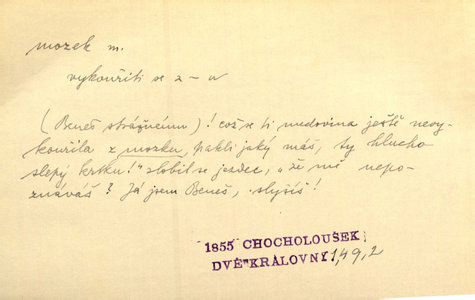 mozek m.
vykouřiti se z – u
(Beneš strážnému)! což se ti medovina ještě nevy-
kouřila z mozku, pakli jaký máš, ty hlucho-
slepý krtku!" zlobil se jezdec, "že mě nepo-
znáváš? Já jsem Beneš, slyšíš!
1855 CHOCHOLOUŠEK
DVĚ KRÁLOVNY 1,49,2